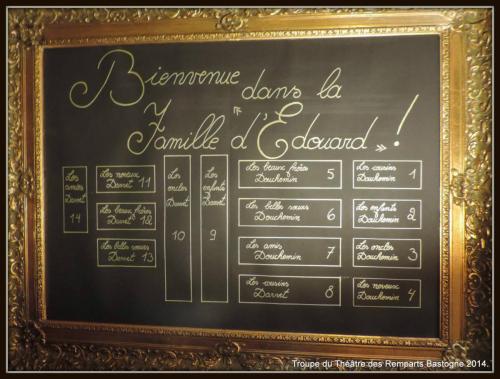 Bienvenue dans la
"Famille d'Edouard" !
Les amies Darvet 14
Les neveux Darvet 11
Les beaux frères Darvet 12
Les belles sœurs Darvet 13
Les oncles Darvet 10
Les enfants Darvet 9
Les beaux frères Douchemin 5
Les belles sœurs Douchemin 6
Les amis Douchemin 7
Les cousins Darvet 8
Les cousins Douchemin 1
Les enfants Douchemin 2
Les oncles Douchemin 3
Les neveux Douchemin 4
Troupe du Théâtre des Remparts Bastogne 2014.